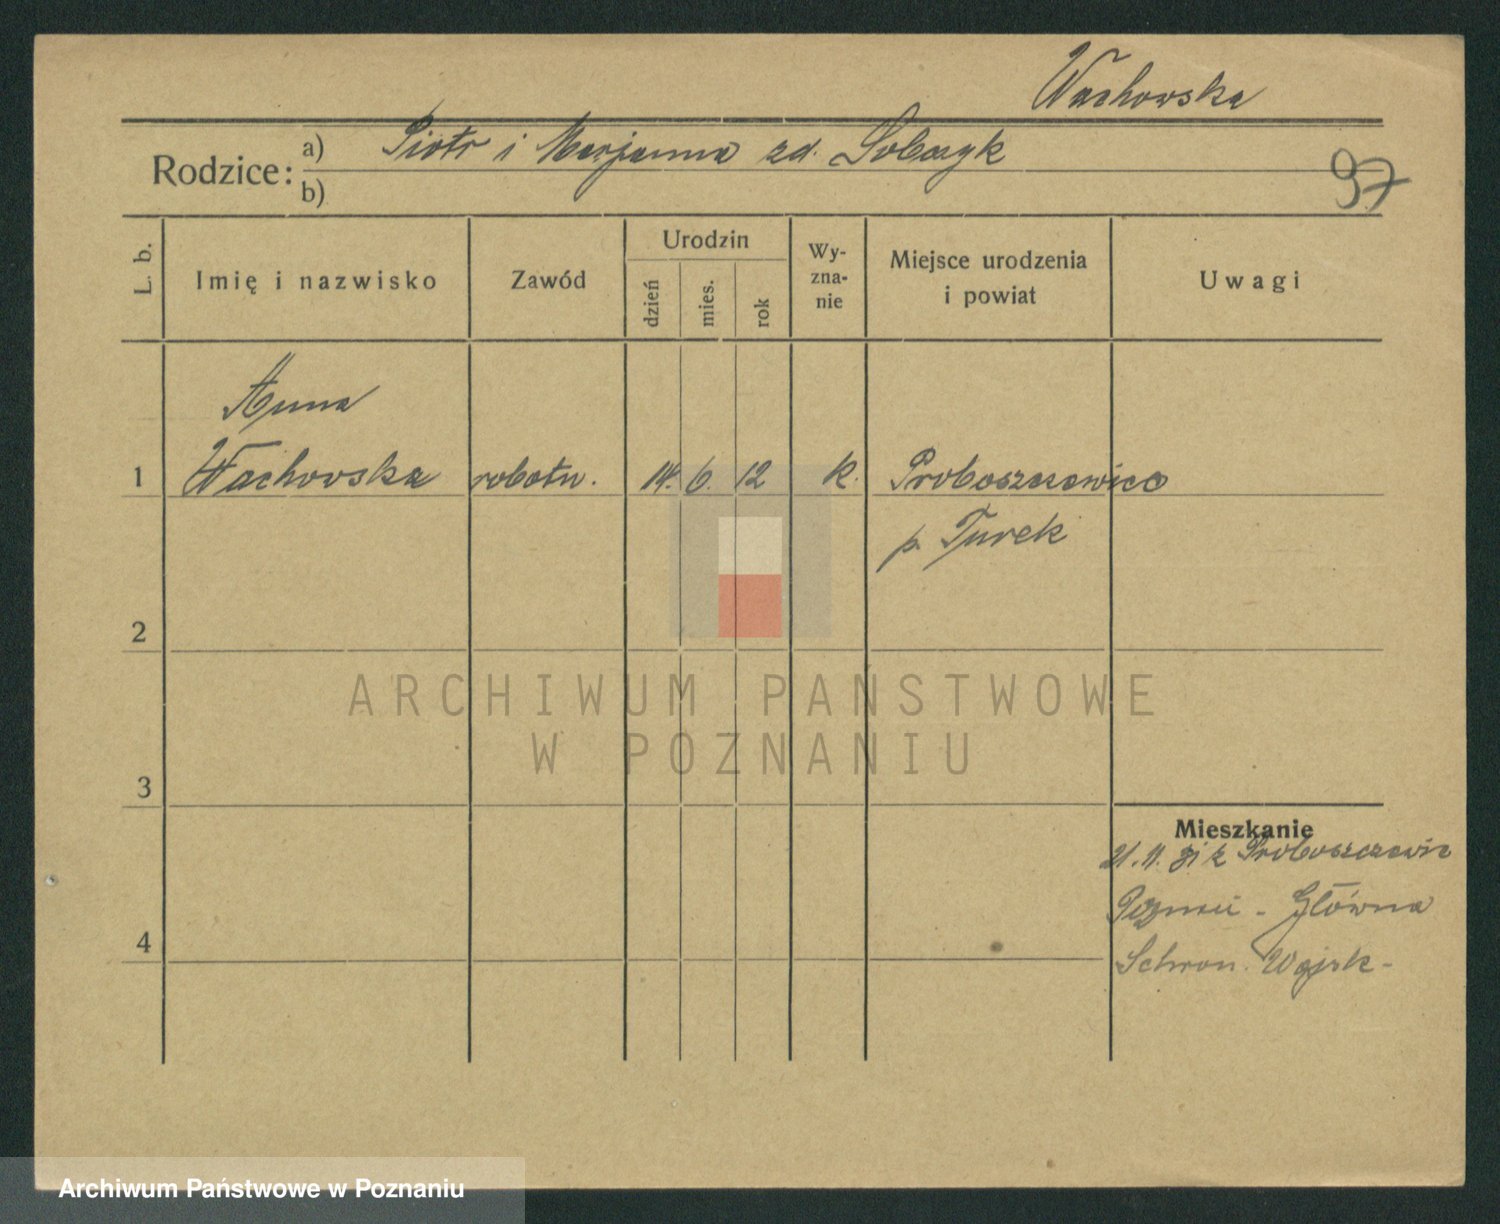 Wachowska
Rodzice:
a) Piotr i Marjanna zd. Sobczyk
b)
97
L. b.
Imię i nazwisko
Zawód
Urodzin
dzień
mies.
rok
Wy-
zna-
nie
Miejsce urodzenia
i powiat
Uwagi
Anna
1 Wachowska robotn. 14. 6. 12 k. Proboszczewice
p. Turek
2
3
4
Mieszkanie
21. 11. 31 z Proboszczewic
Poznań - Główna
Schron. Wojsk-
ARCHIWUM PAŃSTWOWE
W POZNANIU
Archiwum Państwowe w Poznaniu